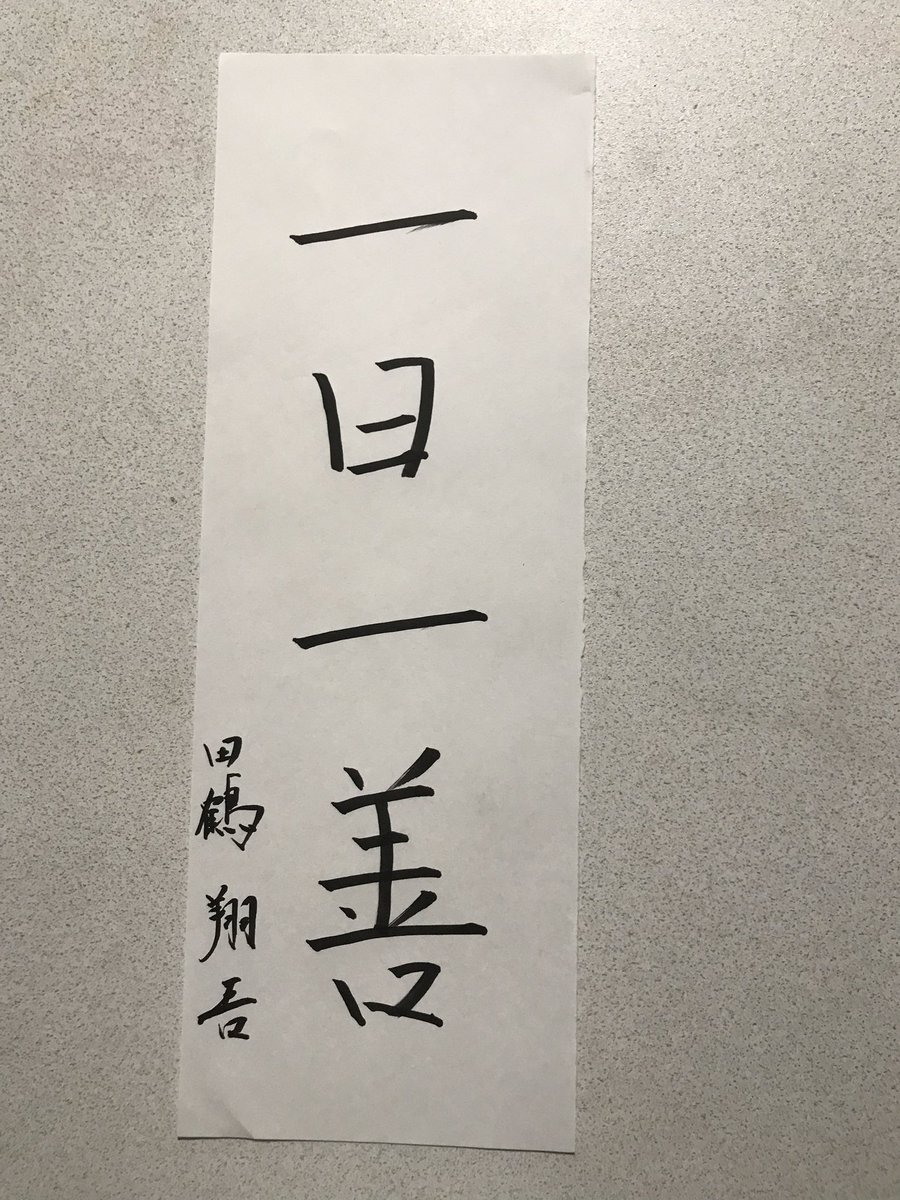 一日一善
田鶴 翔吾